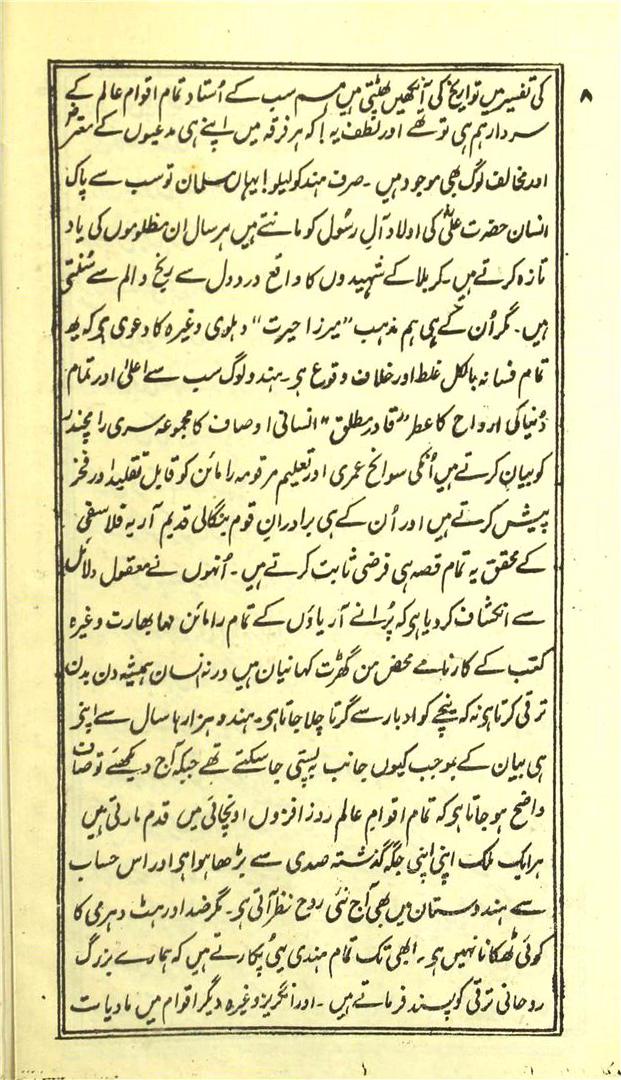 ۸
کی تفسیر میں تواریخ کی آنکھیں پھٹتی ہیں ہم سب کے اُستاد تمام اقوام عالم کے
سردار ہم ہی تو تھے اور لطف یہ! کہ ہر فرقہ میں اپنے ہی مدعیوں کے معترض
اور مخالف لوگ بھی موجود ہیں ۔ صرف ہند کو لیلو! یہاں مسلمان تو سب سے پاک
انسان حضرت علیؓ کی اولاد آلِ رسُول کو مانتے ہیں ہر سال ان مظلوموں کی یاد
تازہ کرتے ہیں ۔ کربلا کے شہیدوں کا واقع درد دل سے رنج و الم سے سُنتے
ہیں ۔ مگر اُن کے ہی ہم مذہب "میرزا حیرت" دہلوی وغیرہ کا دعویٰ ہو کہ یہ
تمام فسانہ بالکل غلط اور خلاف وقوع ہو ۔ ہندو لوگ سب سے اعلیٰ اور تمام
دُنیا کی ارواح کا عطر "قادر مطلق" انسانی اوصاف کا مجموعہ سری رامچندر
کو بیان کرتے ہیں اُنکی سوانح عمری اور تعلیم مرقومہ رامائن کو قابل تقلید اور فخر
پیش کرتے ہیں اور اُن کے ہی برادرانِ قوم بنگالی قدیم آریہ فلاسفی
کے محقق یہ تمام قصہ ہی فرضی ثابت کرتے ہیں ۔ اُنہوں نے معقول دلائل
سے انکشاف کر دیا ہو کہ پُرانے آریاؤں کے تمام رامائن مہا بھارت وغیرہ
کتب کے کارنامے محض من گھڑت کہانیاں ہیں ورنہ انسان ہمیشہ دن بدن
ترقی کرتا ہو نہ کہ نیچے کو ادبار سے گرتا چلا جاتا ہو ۔ ہندو ہزارہا سال سے اپنے
ہی بیان کے بموجب کیوں جانب پستی جا سکتے تھے جبکہ آج دیکھئے تو صاف
واضح ہو جاتا ہو کہ تمام اقوامِ عالم روز افزوں اونچائی میں قدم مارتی ہیں
ہر ایک ملک اپنی اپنی جگہ گذشتہ صدی سے بڑھا ہوا ہو اور اس حساب
سے ہندوستان میں بھی آج نئی روح نظر آتی ہو ۔ مگر ضد اور ہٹ دہرمی کا
کوئی ٹھکانا نہیں ہو ۔ ابھی تک تمام ہندی یہی پُکارتے ہیں کہ ہمارے بزرگ
روحانی ترقی کو پسند فرماتے ہیں ۔ اور انگریز وغیرہ دیگر اقوام میں مادیات